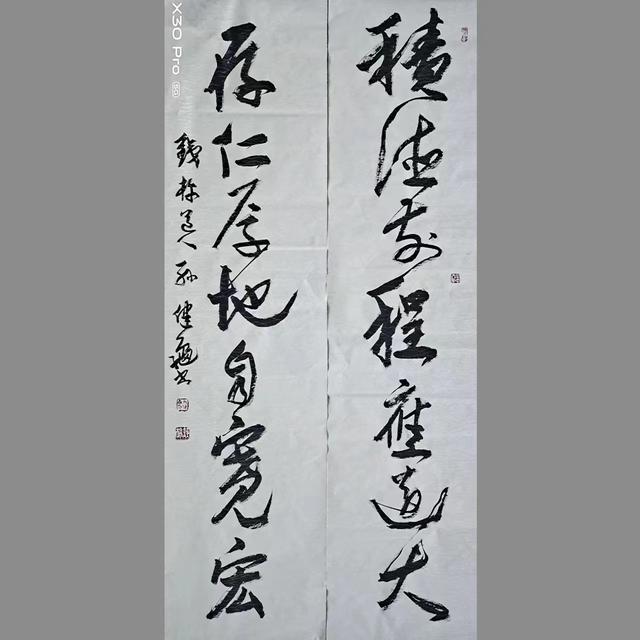 積德前程應遠大
存仁厚地自寬宏
錢塘道人孫健書
X30 Pro